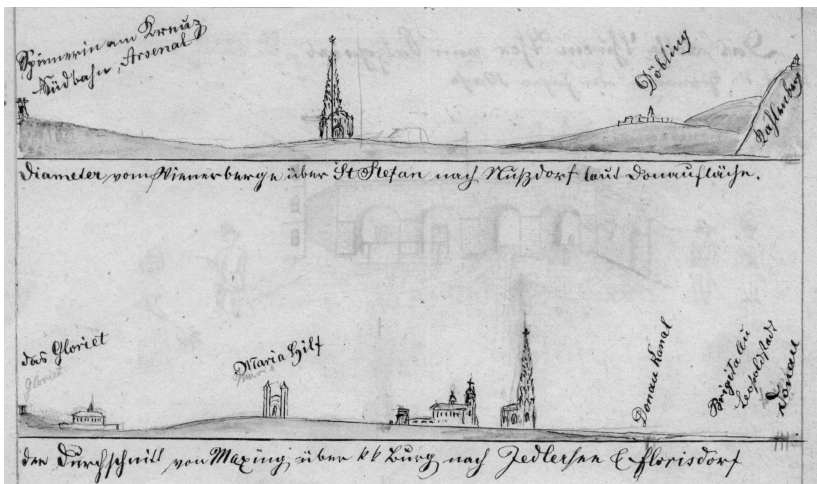 Spinnerin am Kreuz
Südbahn, Arsenal
Döbling
Kahlenberg
Diameter vom Wienerberge über St Stefan nach Nußdorf laut Donaufläche.
das Gloriet
Gloriet
Maria Hilf
Donau Kanal
Brigitt Au
Leopoldstadt
Donau
der Durchschnitt von Maxing über kk Burg nach Jedlersee & Florisdorf